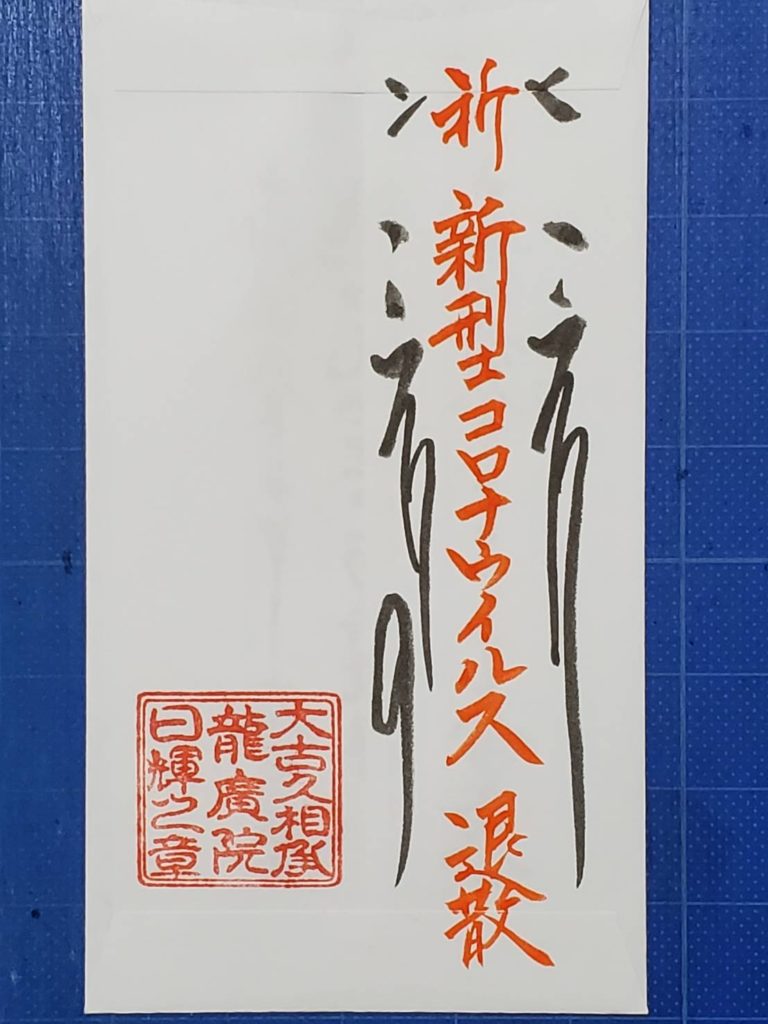 祈 新型コロナウイルス 退散
大古久相承
龍廣院
日輝之章